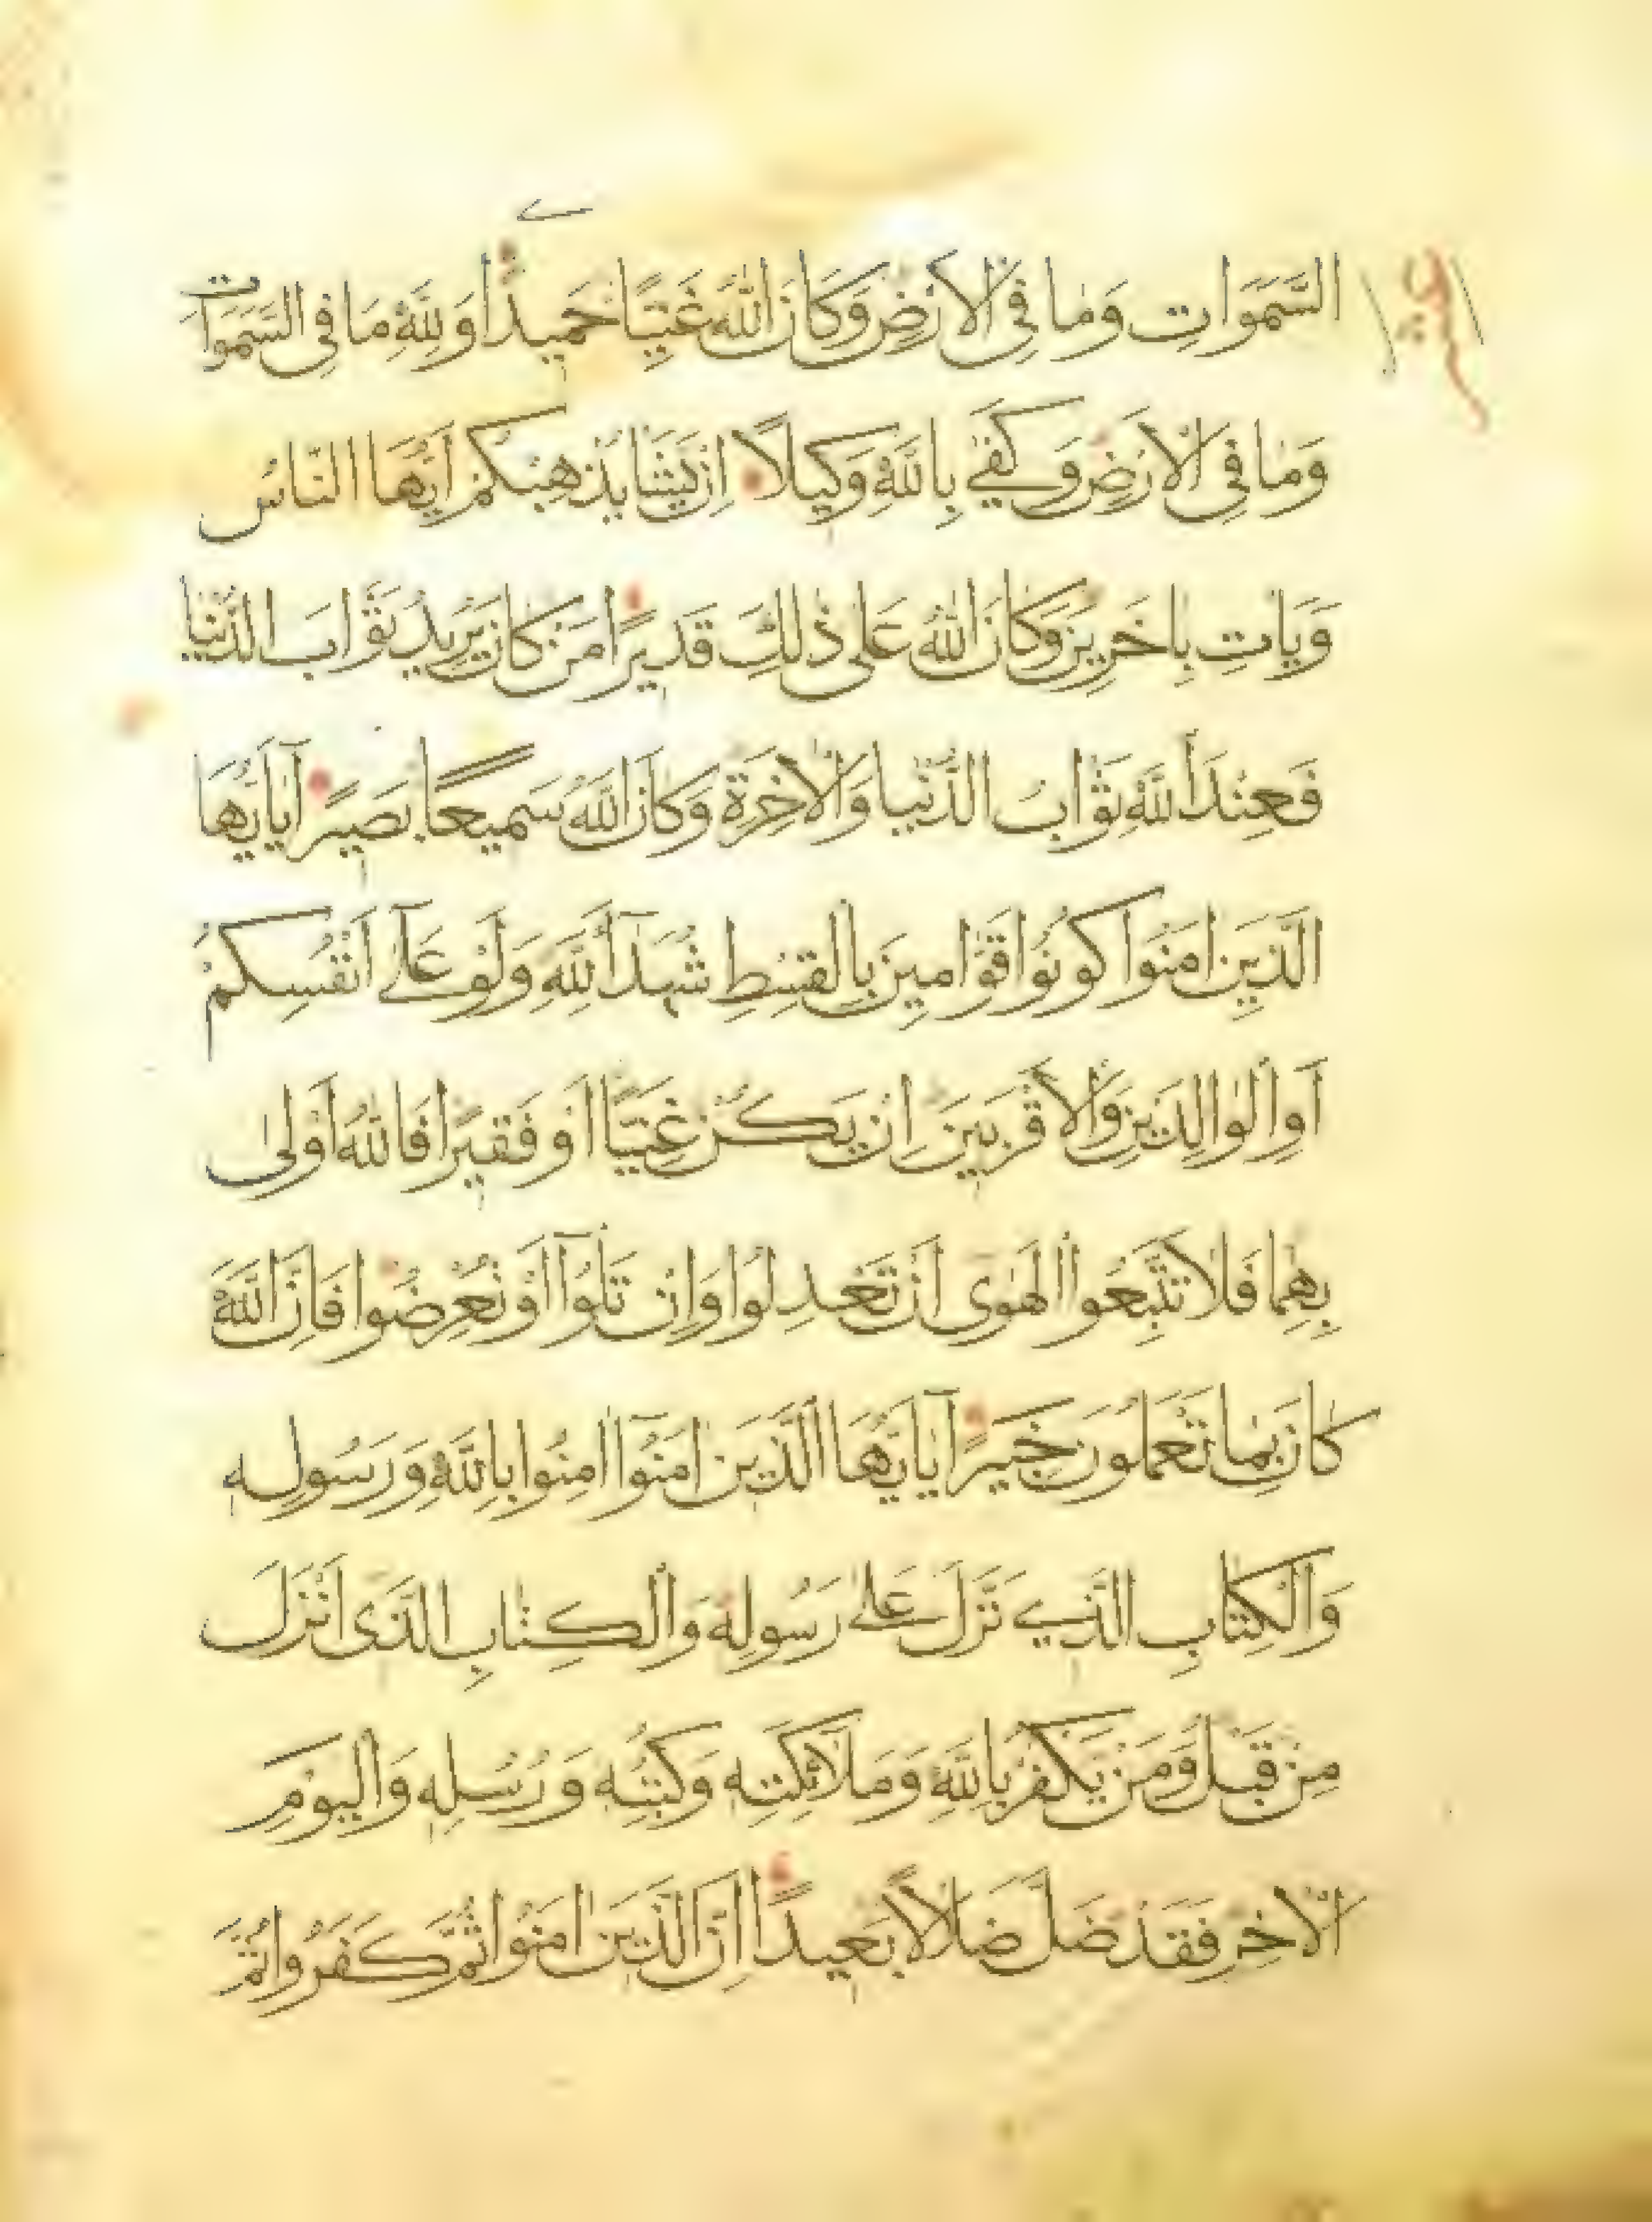 السَّمَوَاتِ وَمَا فِي الْاَرْضِ وَكَانَ اللهُ غَنِيًّا حَمِيدًا وَلِلّٰهِ مَا فِي السَّمَوَاتِ
وَمَا فِي الْاَرْضِ وَكَفَى بِاللهِ وَكِيلًا اِنْ يَشَا يُذْهِبْكُمْ اَيُّهَا النَّاسُ
وَيَاتِ بِاخَرِينَ وَكَانَ اللهُ عَلَى ذٰلِكَ قَدِيرًا مَنْ كَانَ يُرِيدُ ثَوَابَ الدُّنْيَا
فَعِنْدَ اللهِ ثَوَابُ الدُّنْيَا وَالْاخِرَةِ وَكَانَ اللهُ سَمِيعًا بَصِيرًا يَا اَيُّهَا
الَّذِينَ امَنُوا كُونُوا قَوَّامِينَ بِالْقِسْطِ شُهَدَآءَ لِلّٰهِ وَلَوْ عَلَى اَنْفُسِكُمْ
اَوِ الْوَالِدَيْنِ وَالْاَقْرَبِينَ اِنْ يَكُنْ غَنِيًّا اَوْ فَقِيرًا فَاللهُ اَوْلَى
بِهِمَا فَلَا تَتَّبِعُوا الْهَوَى اَنْ تَعْدِلُوا وَاِنْ تَلْوُٓا اَوْ تُعْرِضُوا فَاِنَّ اللهَ
كَانَ بِمَا تَعْمَلُونَ خَبِيرًا يَآ اَيُّهَا الَّذِينَ امَنُوٓا امِنُوا بِاللهِ وَرَسُولِهِ
وَالْكِتَابِ الَّذِي نَزَّلَ عَلَى رَسُولِهِ وَالْكِتَابِ الَّذِي اَنْزَلَ
مِنْ قَبْلُ وَمَنْ يَكْفُرْ بِاللهِ وَمَلَائِكَتِهِ وَكُتُبِهِ وَرُسُلِهِ وَالْيَوْمِ
الْاخِرِ فَقَدْ ضَلَّ ضَلَالًا بَعِيدًا اِنَّ الَّذِينَ امَنُوا ثُمَّ كَفَرُوا ثُمَّ